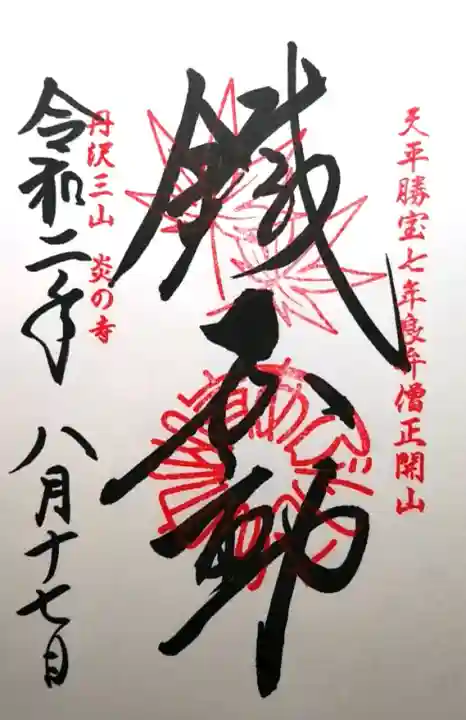 天平勝宝七年良弁僧正開山
鐵不動
丹沢三山 炎の寺
令和二年 八月十七日